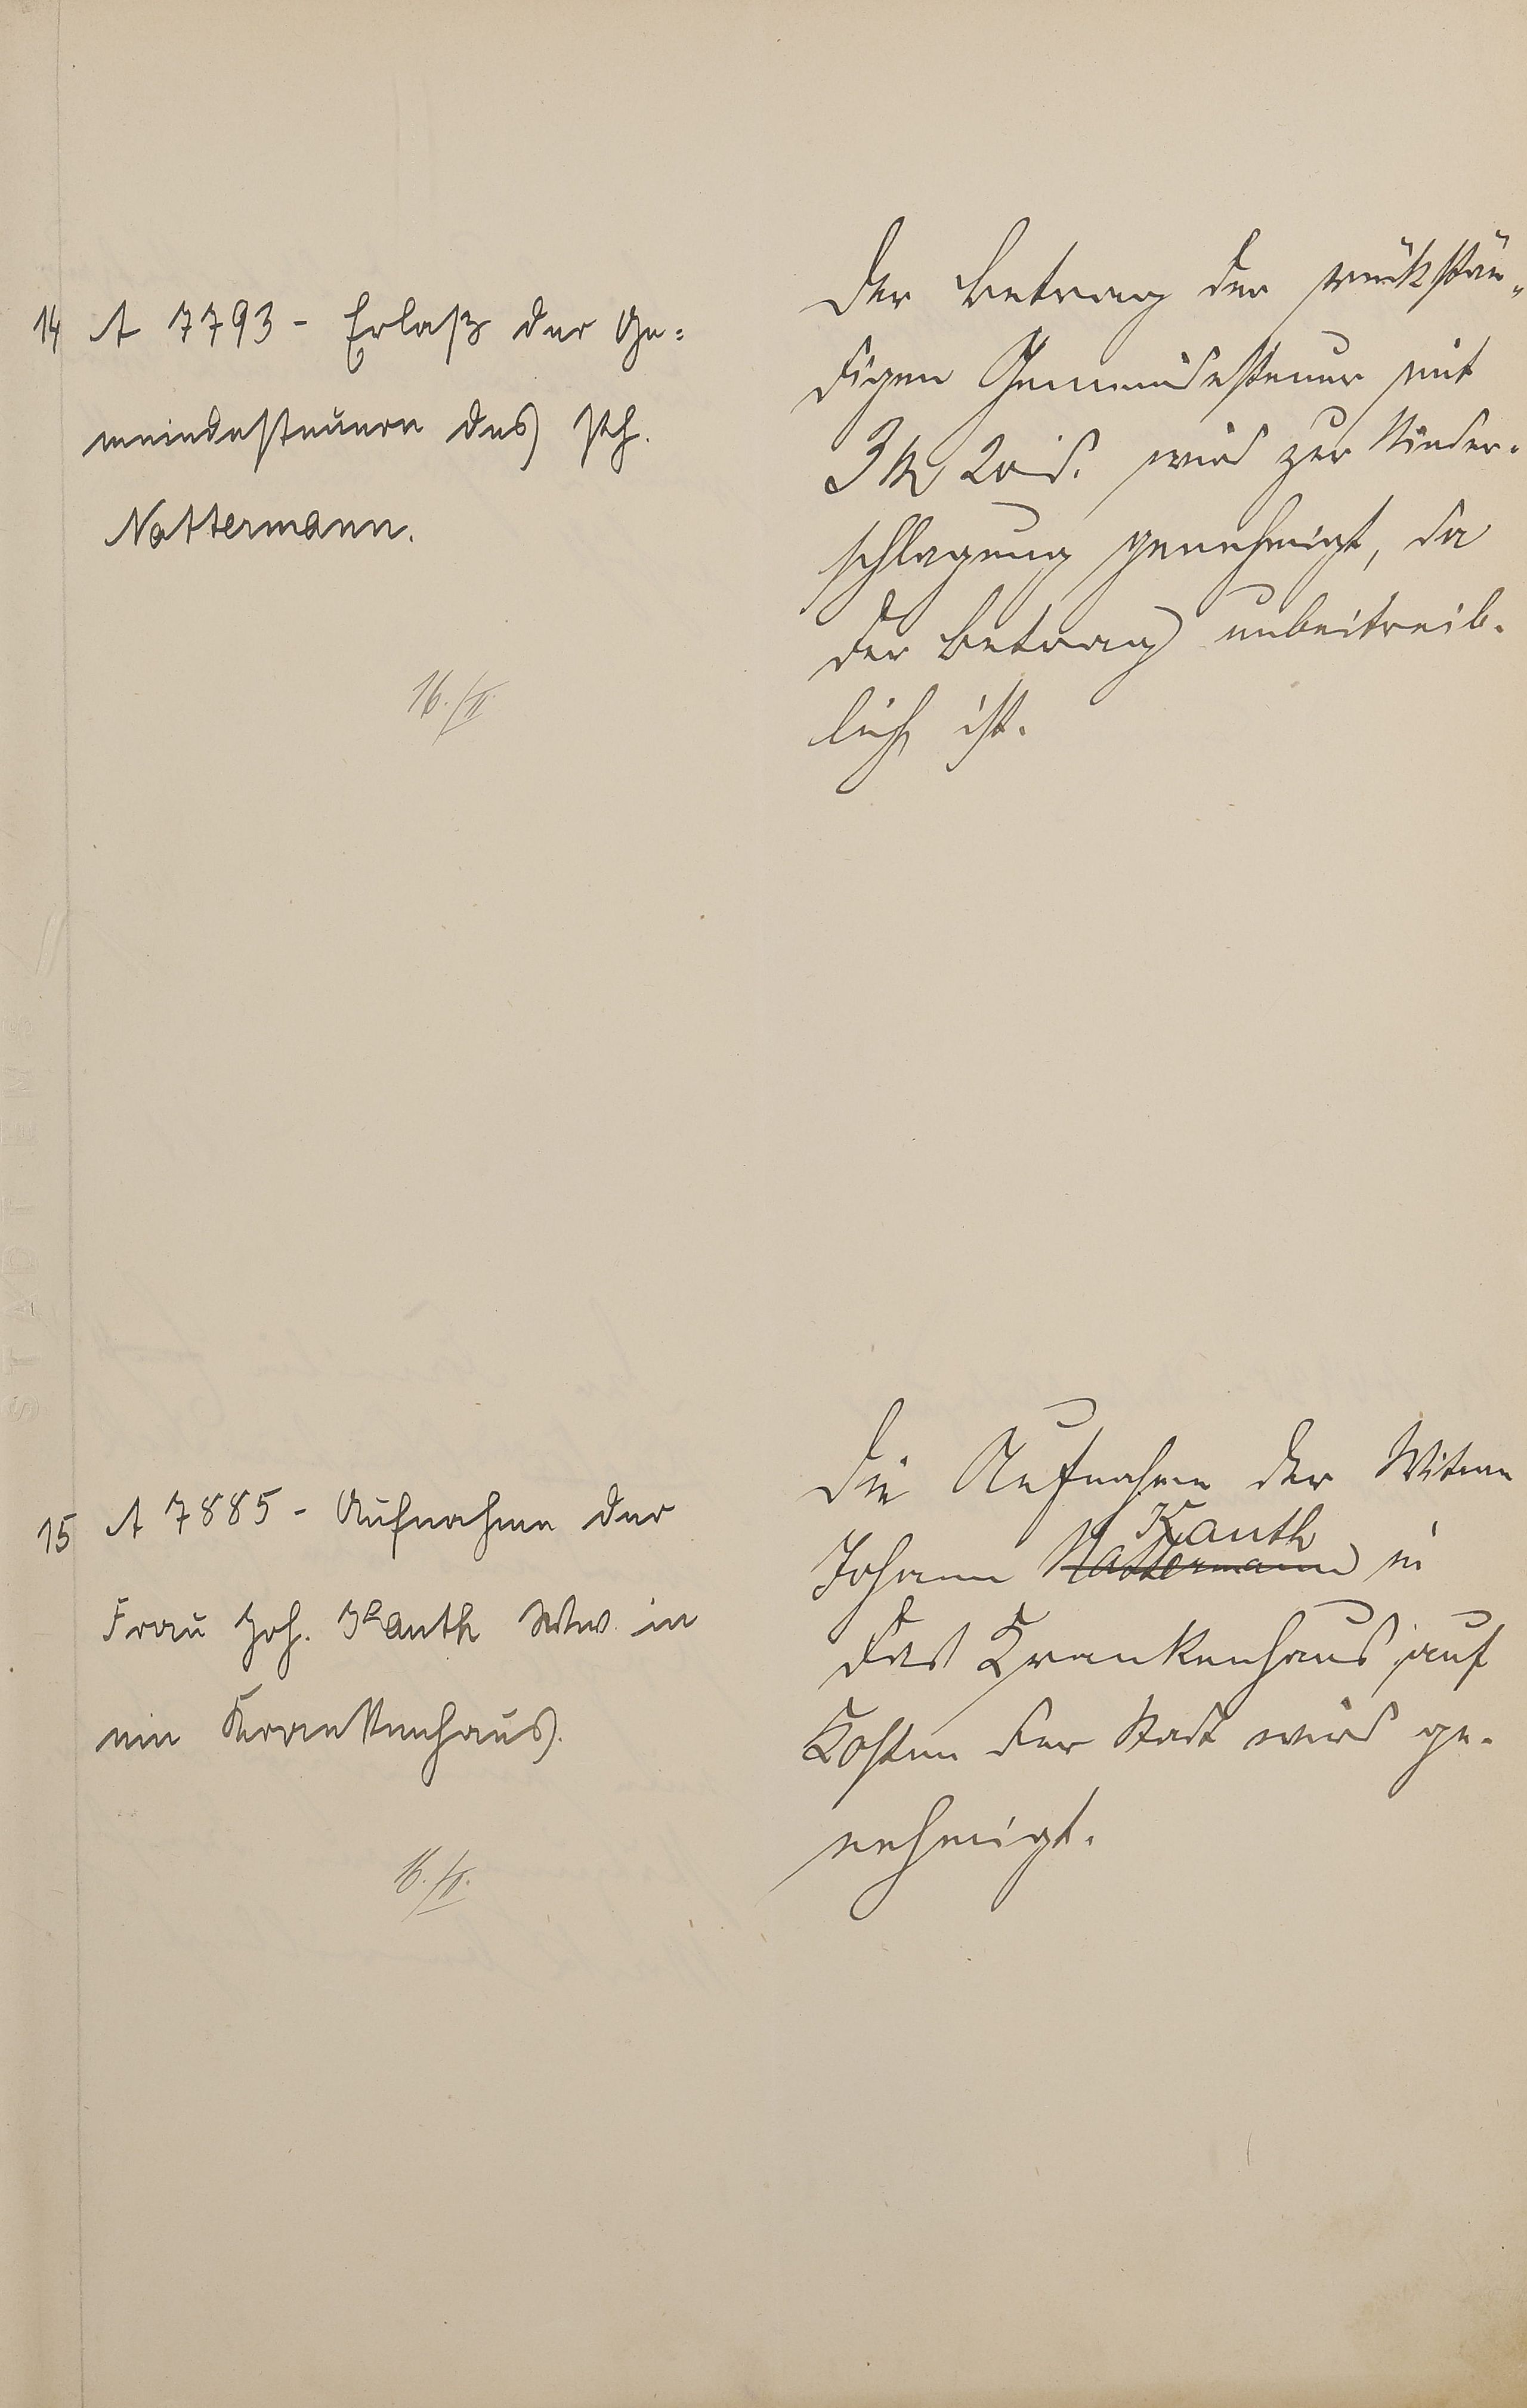 14 A 7793 - Erlaß der Ge=
meindesteuern des Ph.
Nattermann.
16./II.
Der Betrag der rückstän-
digen Gemeindesteuer mit
3 M 20 d. wird zur Nieder-
schlagung genehmigt, da
der Betrag unbeitreib-
lich ist.
15 A 7885 - Aufnahme der
Frau Joh. Kauth Ww. in
ein Krankenhaus.
16./II.
Die Aufnahme der Witwe
Kauth
Johann Nattermann in
das Krankenhaus auf
Kosten der Stadt wird ge-
nehmigt.